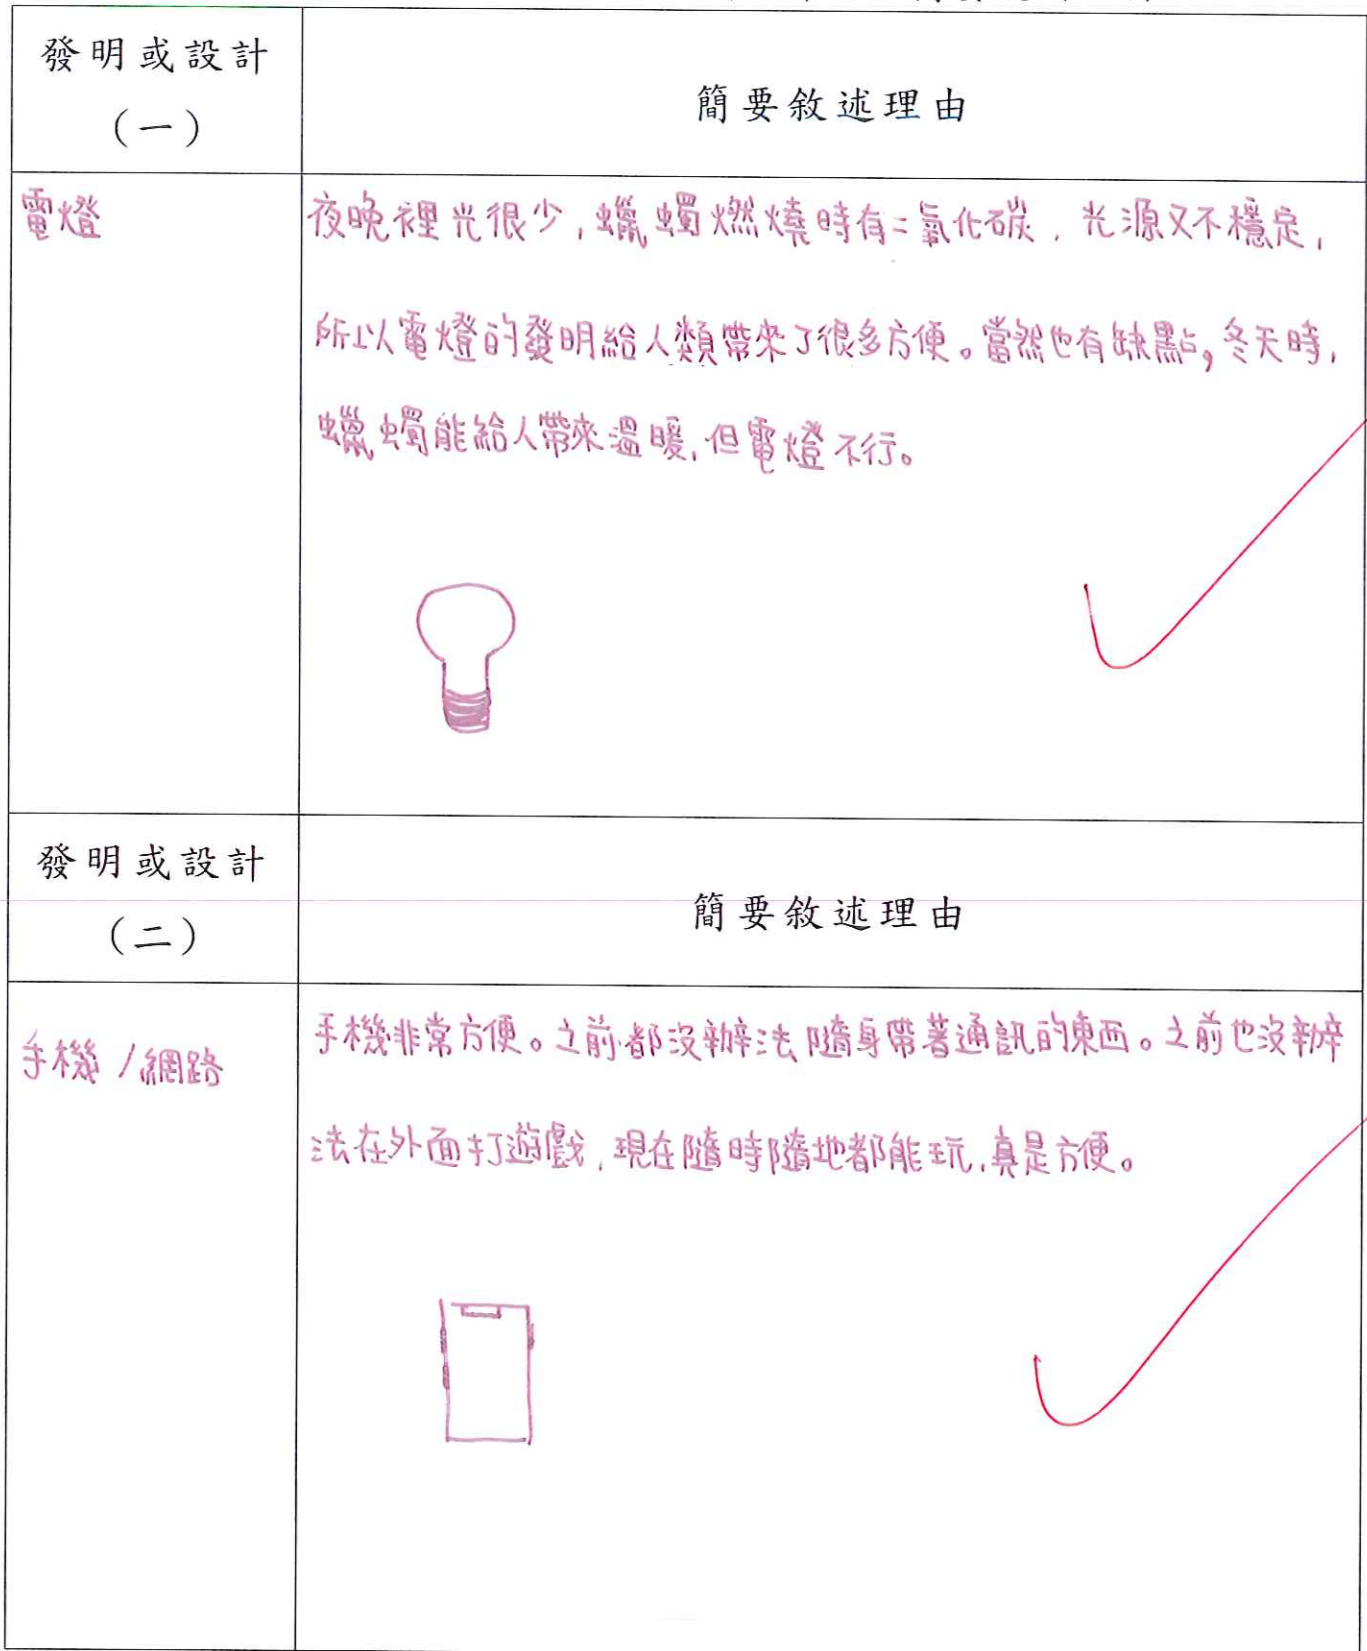 發明或設計
（一）
簡要敘述理由
電燈
夜晚裡光很少,蠟蠋燃燒時有二氧化碳,光源又不穩定,
所以電燈的發明給人類帶來了很多方便。當然也有缺點,冬天時,
蠟蠋能給人帶來溫暖,但電燈不行。
發明或設計
（二）
簡要敘述理由
手機/網路
手機非常方便。之前都沒辦法隨身帶著通訊的東西。之前也沒辦
法在外面打遊戲,現在隨時隨地都能玩,真是方便。